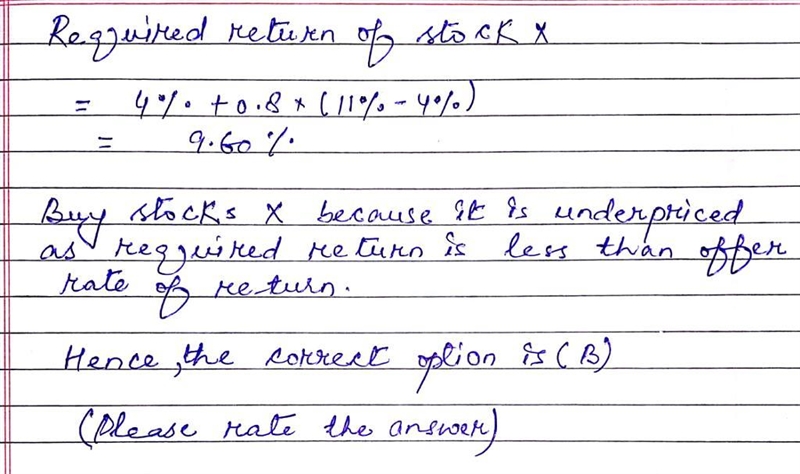 Required return of stock X
= 4% + 0.8 × (11% - 4%)
= 9.60 %
Buy stocks X because it is underpriced
as required return is less than offer
rate of return.
Hence, the correct option is (B)
(Please rate the answer)